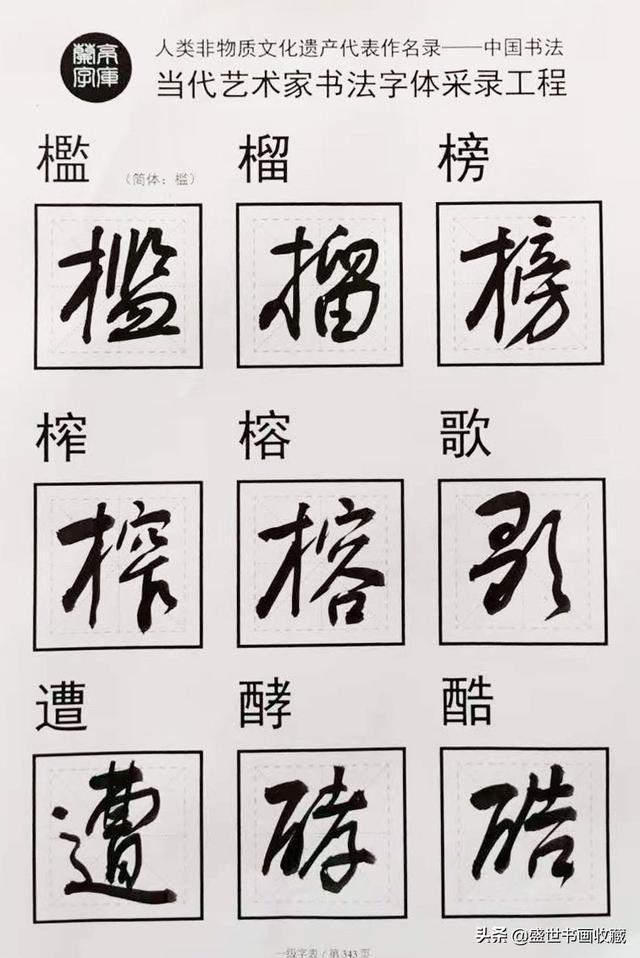 蘭亭字庫
人类非物质文化遗产代表作名录——中国书法
当代艺术家书法字体采录工程
檻 （简体：槛） 榴 榜
檻 榴 榜
榨 榕 歌
榨 榕 歌
遭 酵 酷
遭 酵 酷
一级字表 / 第 343 页
头条 @盛世书画收藏